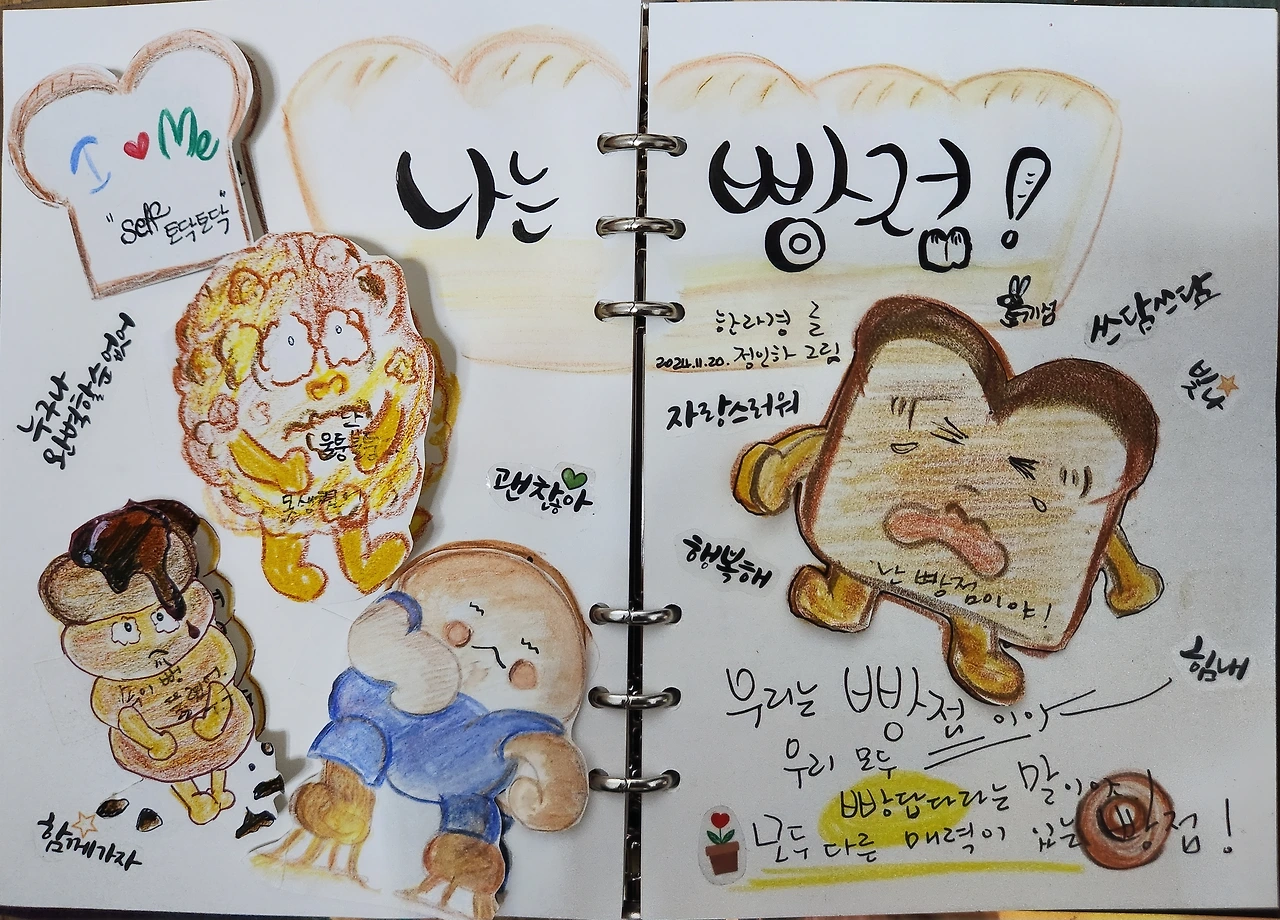 I ♥ Me
"self 토닥토닥"
나는
빵점!
한라경 글
2024.11.20. 정인하 그림
쓰담쓰담
빛나
자랑스러워
누구나
완벽할 순 없어
난
울퉁불퉁
괜찮아
행복해
난 빵점이야!
힘내
함께가자
우리는 빵점이야
우리 모두
빵답다라는 말이야!
모두 다른 매력이 있는 빵점!